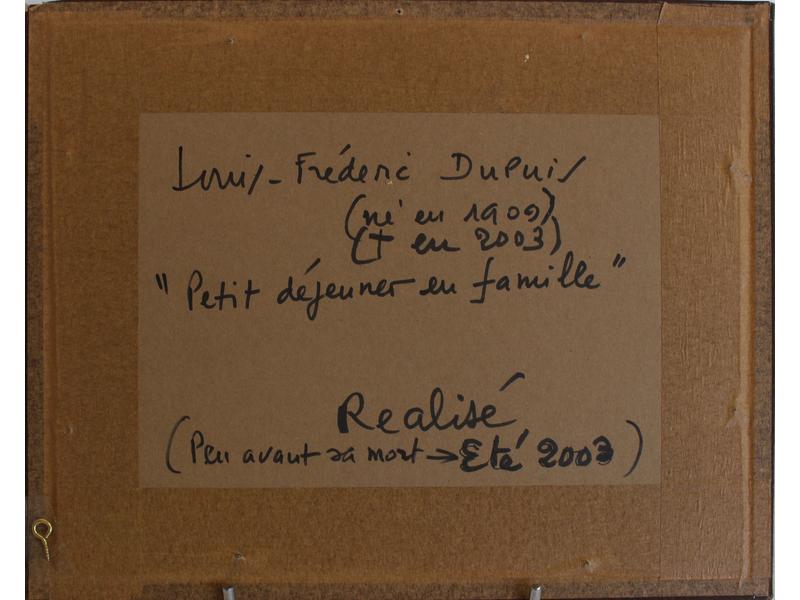 Louis-Fréderic Dupuis
(né en 1909)
(† en 2003)
"Petit déjeuner en famille"
Realisé
(Peu avant sa mort → Eté 2003)